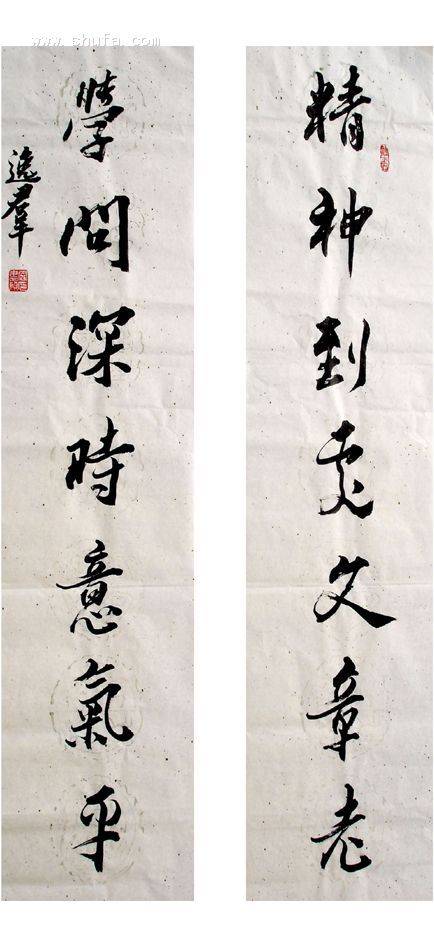 www.shufa.com
精神到处文章老
學問深時意氣平
逸羣